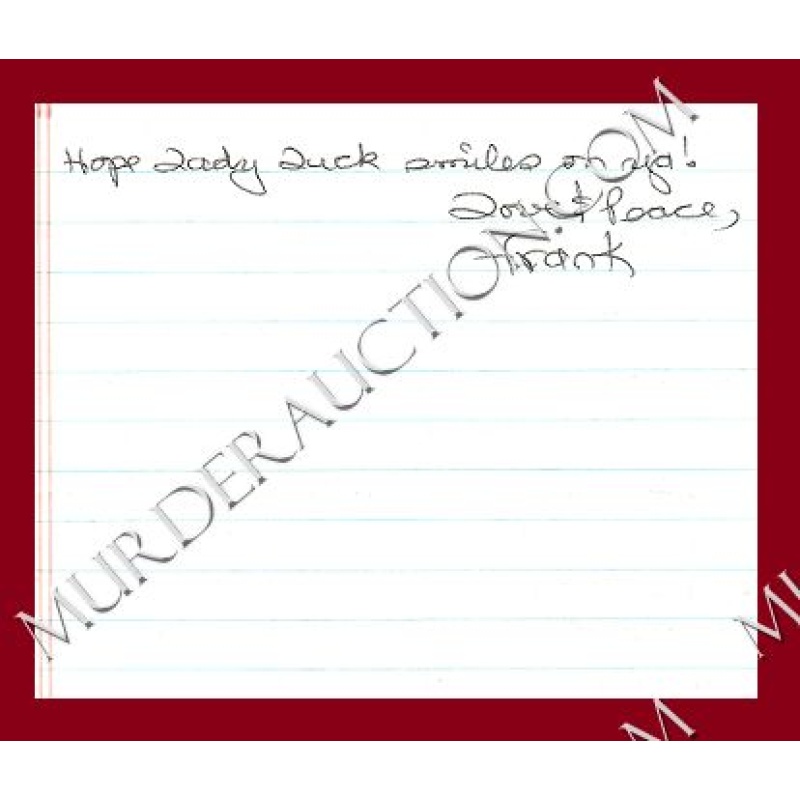 Hope Lady Luck smiles on ya!
Love & Peace,
Frank
MURDERAUCTION.COM
MU
M